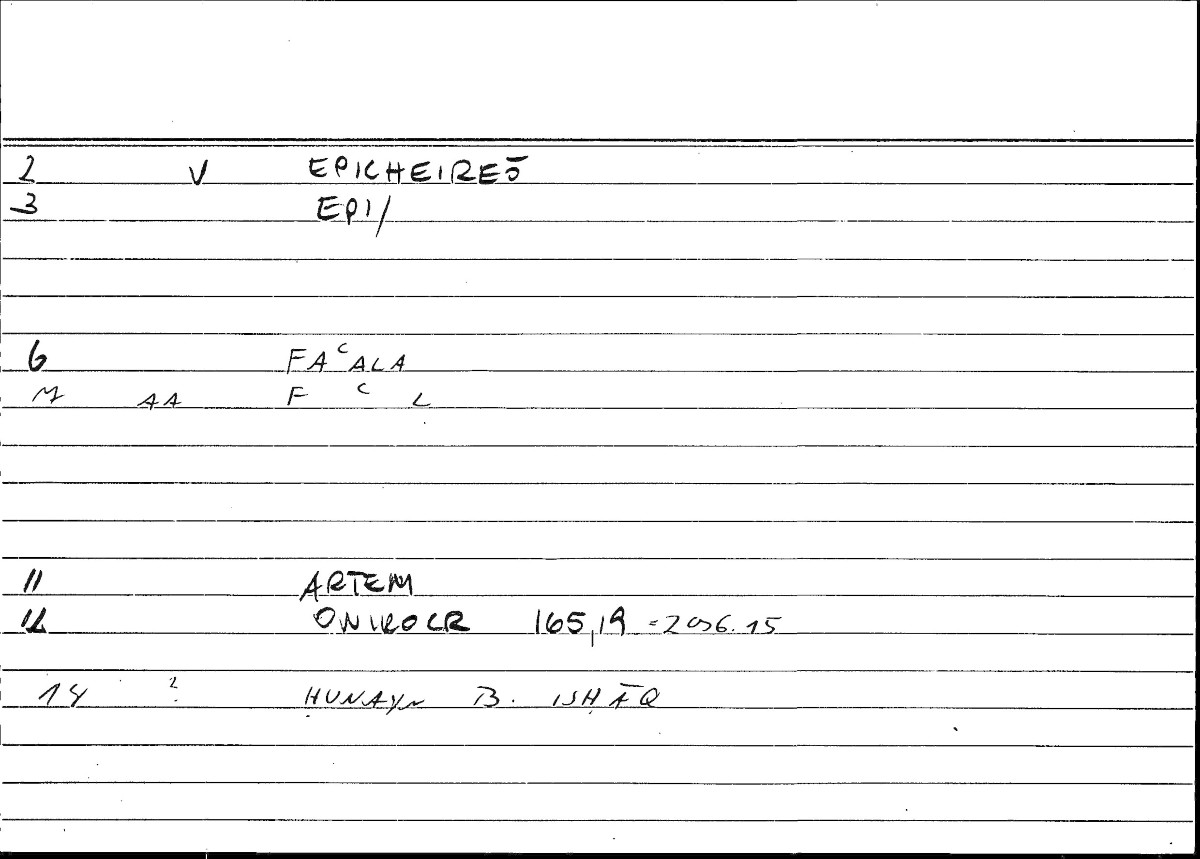 2 V EPICHEIREŌ
3 EPI/
6 FAʿALA
M AA F ʿ L
11 ARTEM
12 ONIROCR 165,19 = 206.15
14 ? ḤUNAYN B. ISḤĀQ